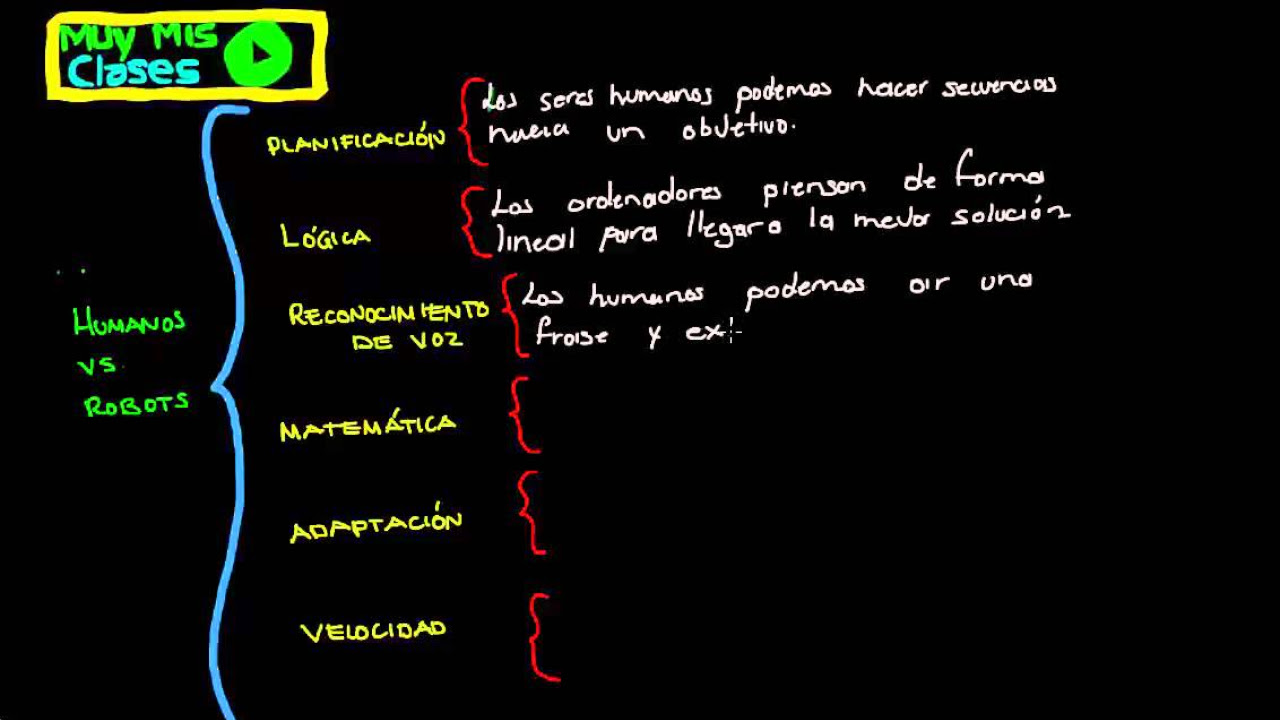 Muy Mis
Clases
PLANIFICACIÓN
Los seres humanos podemos hacer secuencias
hacia un objetivo.
LÓGICA
Los ordenadores piensan de forma
lineal para llegar a la mejor solución
HUMANOS
VS.
ROBOTS
RECONOCIMIENTO
DE VOZ
Los humanos podemos oir una
frase y ex
MATEMÁTICA
ADAPTACIÓN
VELOCIDAD